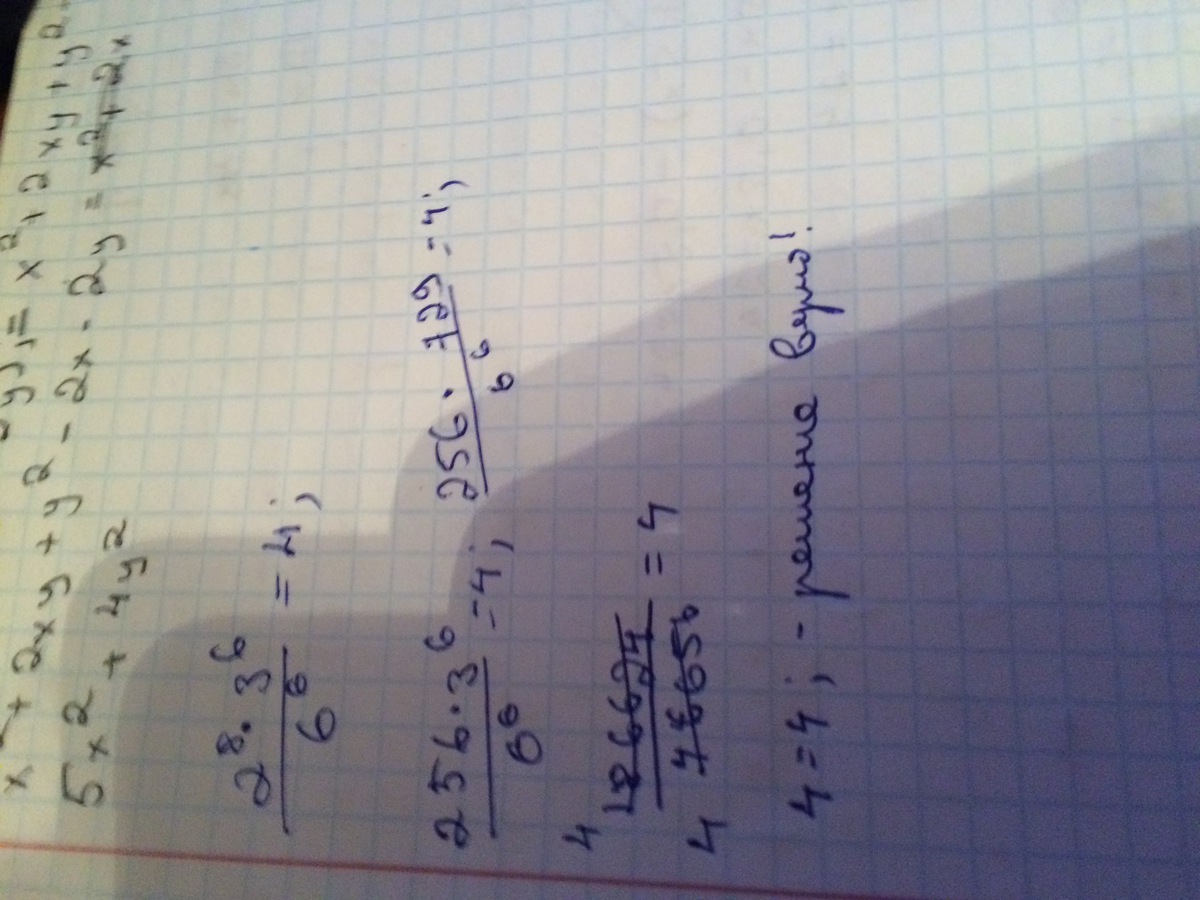 x² + 2xy + y² - 2x - 2y = x² + 2x
5x² + 4y²
2⁸ · 3⁶ / 6⁶ = 4;
256 · 3⁶ / 6⁶ = 4; 256 · 729 / 6⁶ = 4;
4 / 46656 = 4
4 = 4; - решение верно!